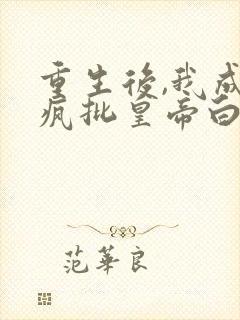 重生後,我成
疯批皇帝白
范華良